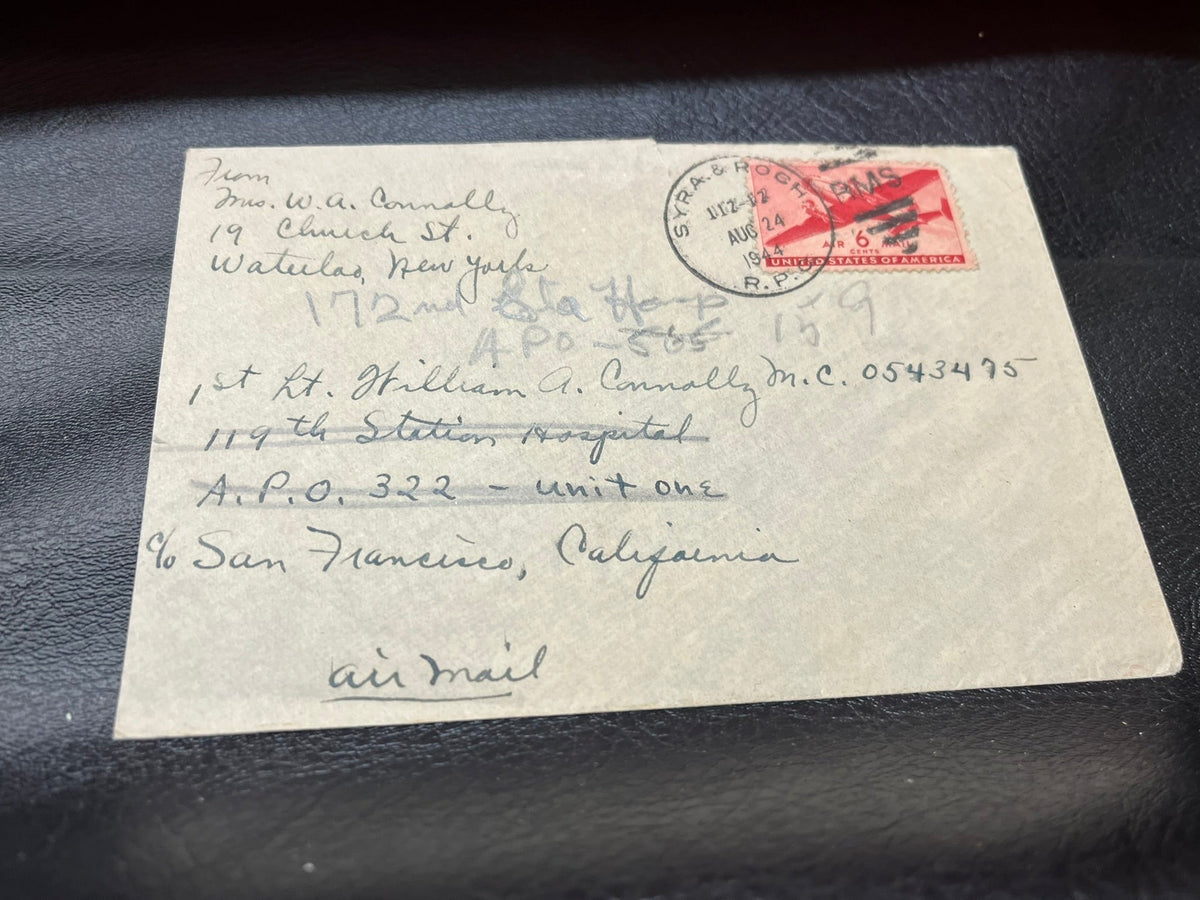 From
Mrs. W. A. Connolly
19 Church St.
Waterloo, New York
SYRA. & ROCH.
AUG 24
1944
R.P.O.
RMS
AIR 6 MAIL
CENTS
UNITED STATES OF AMERICA
172nd Sta Hosp
APO - 565 159
1st Lt. William A. Connolly M.C. 0543475
119th Station Hospital
A.P.O. 322 - unit one
c/o San Francisco, California
air mail